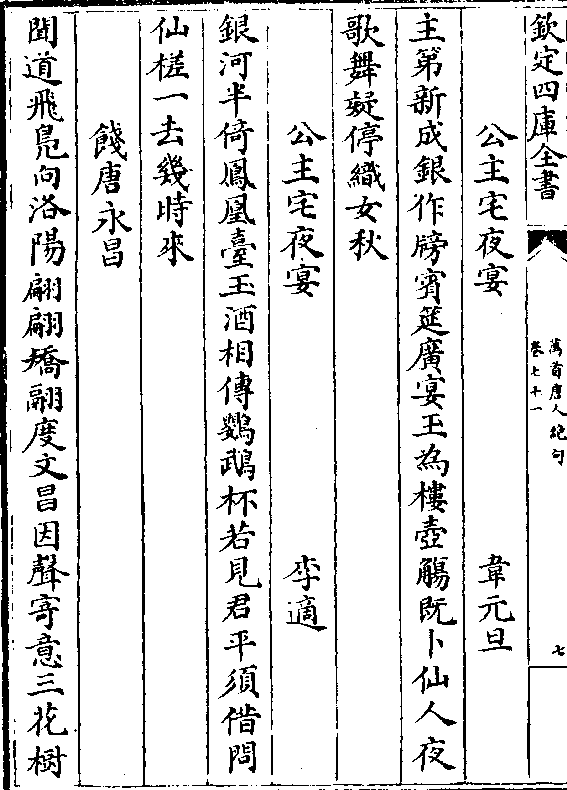 欽定四庫全書
萬首唐人絶句
卷七十一
七
公主宅夜宴 韋元旦
主第新成銀作牓賓筵廣宴玉為樓壺觴既卜仙人夜
歌舞疑停織女秋
公主宅夜宴 李適
銀河半倚鳳凰臺玉酒相傳鸚鵡杯若見君平須借問
仙槎一去幾時來
餞唐永昌
聞道飛鳧向洛陽翩翩矯翮度文昌因聲寄意三花樹